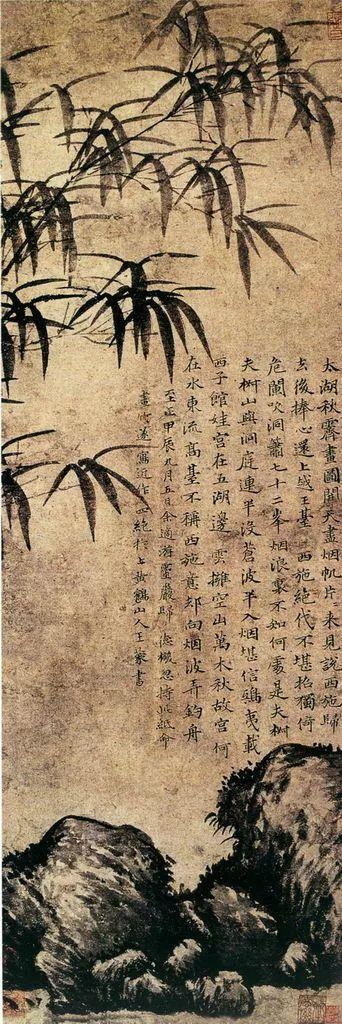 太湖秋霽畫圖開天盡烟帆片片來見說西施歸
去後捧心還上越王臺 西施絕代不堪招獨倚
危闌吹洞簫七十二峯烟浪裏不知何處是夫椒
夫椒山與洞庭連半沒蒼波半入烟堪信鴟夷載
西子館娃宮在五湖邊 雲擁空山萬木秋故宮何
在水東流高臺不稱西施意却向烟波弄釣舟
至正甲辰九月五日余適游靈巖歸 德機忽持此紙命
畫竹遂寫近作四絕於上黃鶴山人王蒙書